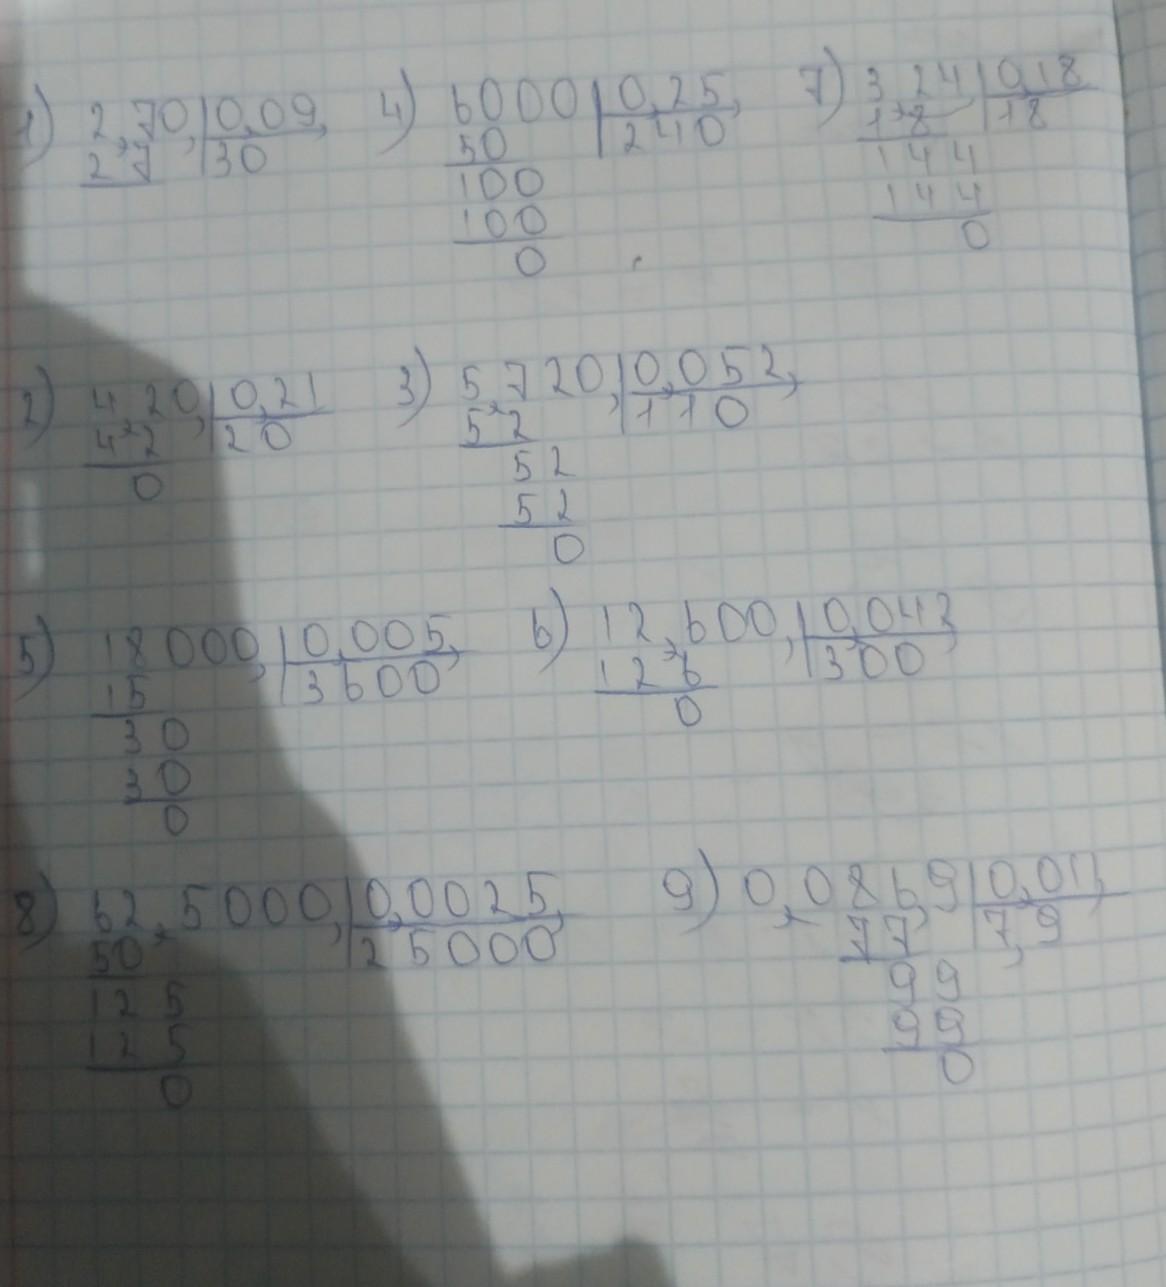 1) 2,70, | 0,09, 4) 6000 | 0,25, 7) 3,24 | 0,18
27 | 30 50 | 240 18 | 18
100 144
100 144
0 0
2) 4,20, | 0,21 3) 5,720, | 0,052,
42 | 20 52 | 110
0 52
52
0
5) 18000, | 0,005, 6) 12,600, | 0,042
15 | 3600 126 | 300
30 0
30
0
8) 62,5000, | 0,0025, 9) 0,0869 | 0,011,
50 | 25000 77 | 7,9
125 99
125 99
0 0